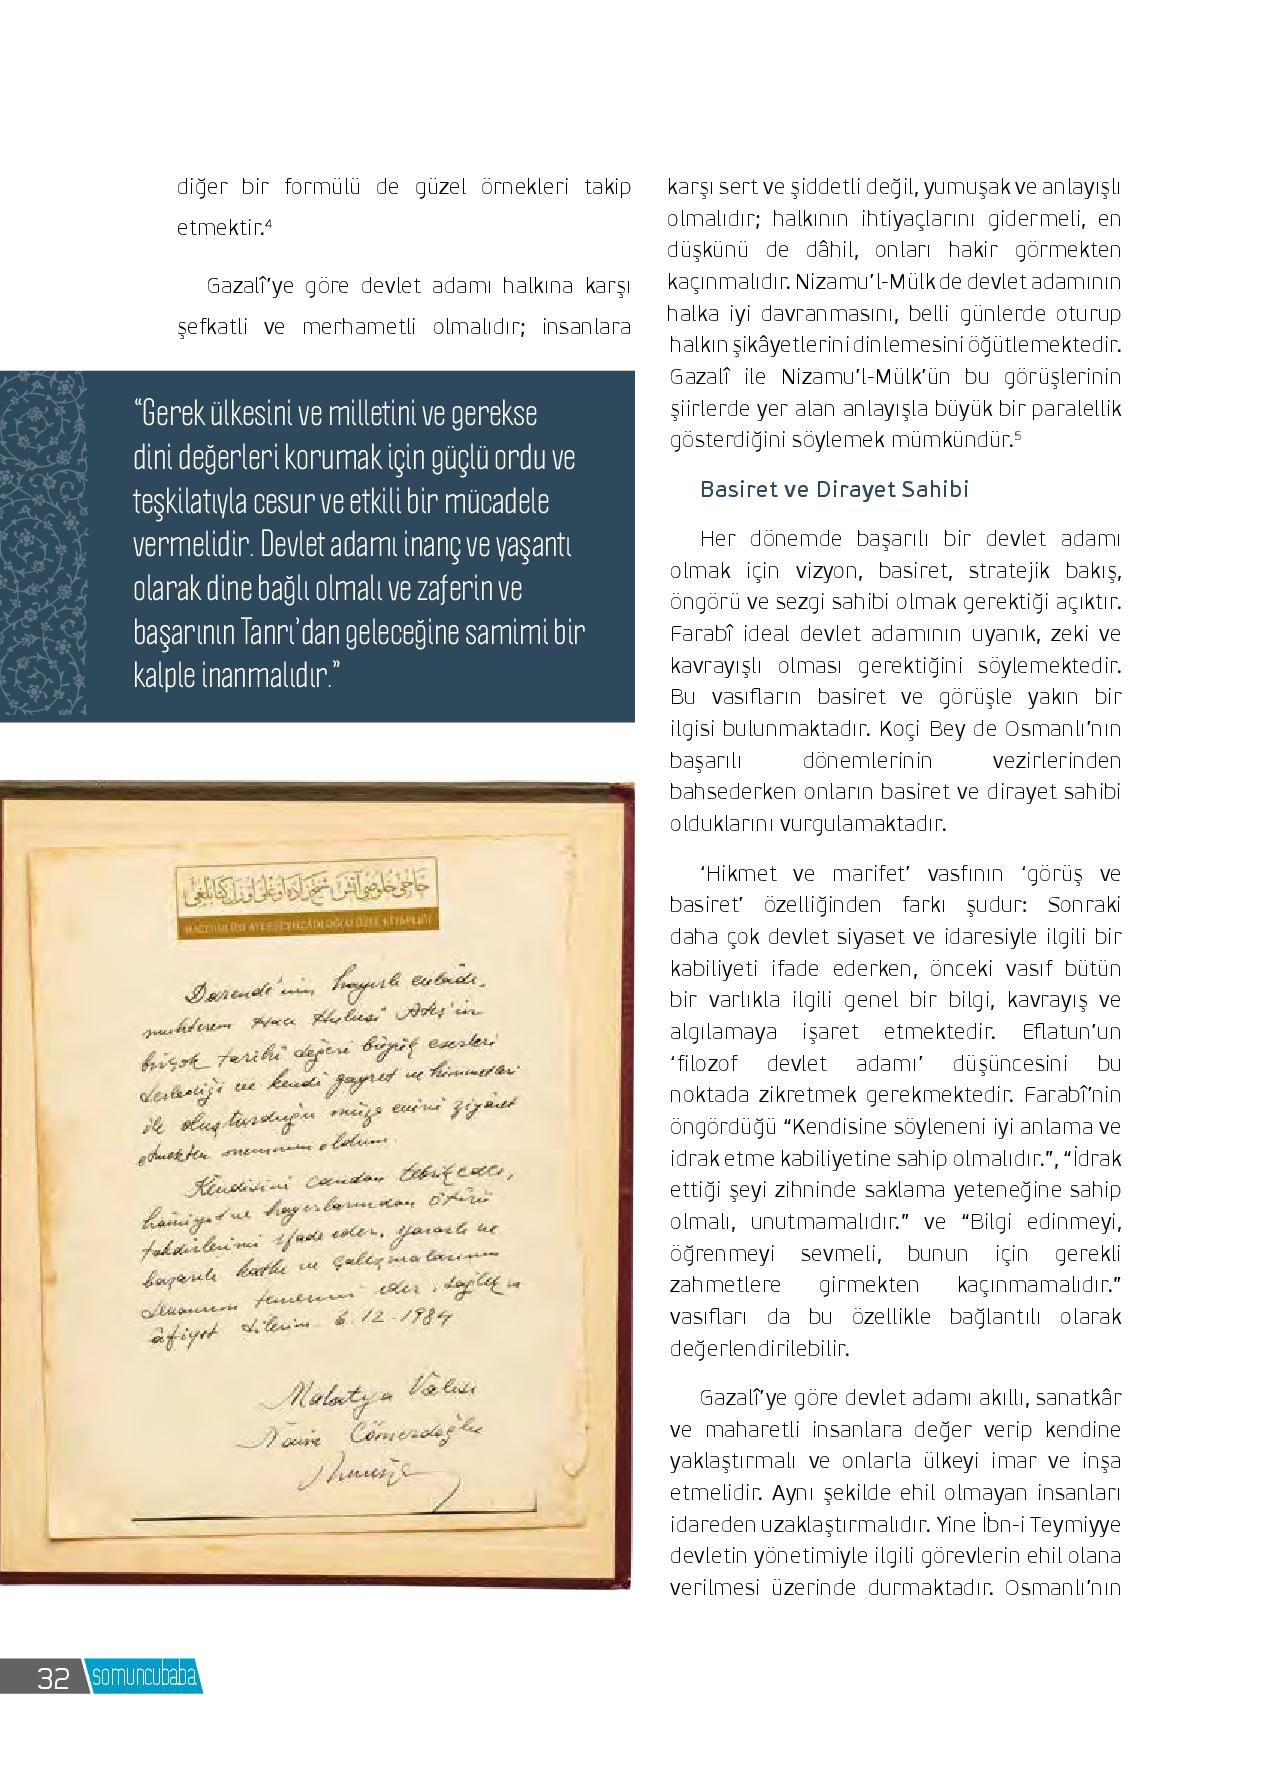 diğer bir formülü de güzel örnekleri takip
etmektir.⁴
Gazalî’ye göre devlet adamı halkına karşı
şefkatli ve merhametli olmalıdır; insanlara
“Gerek ülkesini ve milletini ve gerekse
dini değerleri korumak için güçlü ordu ve
teşkilatıyla cesur ve etkili bir mücadele
vermelidir. Devlet adamı inanç ve yaşantı
olarak dine bağlı olmalı ve zaferin ve
başarının Tanrı’dan geleceğine samimi bir
kalple inanmalıdır.”
Darende'nin hayırlı evlâdı,
muhterem Hacı Hulusi Ateş'in
birçok tarihî değeri büyük eserleri
derlediği ve kendi gayret ve himmetleri
ile oluşturduğu müze evini ziyaret
etmekten memnun oldum.
Kendisini candan tebrik eder,
hamiyet ve hayırlarından ötürü
takdirlerimi ifade eder, yararlı ve
başarılı katkı ve çalışmalarının
devamını temenni eder, sağlık ve
âfiyet dilerim. 6.12.1984
Malatya Valisi
Naim Cömertoğlu
karşı sert ve şiddetli değil, yumuşak ve anlayışlı
olmalıdır; halkının ihtiyaçlarını gidermeli, en
düşkünü de dâhil, onları hakir görmekten
kaçınmalıdır. Nizamu’l-Mülk de devlet adamının
halka iyi davranmasını, belli günlerde oturup
halkın şikâyetlerini dinlemesini öğütlemektedir.
Gazalî ile Nizamu’l-Mülk’ün bu görüşlerinin
şiirlerde yer alan anlayışla büyük bir paralellik
gösterdiğini söylemek mümkündür.⁵
Basiret ve Dirayet Sahibi
Her dönemde başarılı bir devlet adamı
olmak için vizyon, basiret, stratejik bakış,
öngörü ve sezgi sahibi olmak gerektiği açıktır.
Farabî ideal devlet adamının uyanık, zeki ve
kavrayışlı olması gerektiğini söylemektedir.
Bu vasıfların basiret ve görüşle yakın bir
ilgisi bulunmaktadır. Koçi Bey de Osmanlı’nın
başarılı dönemlerinin vezirlerinden
bahsederken onların basiret ve dirayet sahibi
olduklarını vurgulamaktadır.
‘Hikmet ve marifet’ vasfının ‘görüş ve
basiret’ özelliğinden farkı şudur: Sonraki
daha çok devlet siyaset ve idaresiyle ilgili bir
kabiliyeti ifade ederken, önceki vasıf bütün
bir varlıkla ilgili genel bir bilgi, kavrayış ve
algılamaya işaret etmektedir. Eflatun’un
‘filozof devlet adamı’ düşüncesini bu
noktada zikretmek gerekmektedir. Farabî’nin
öngördüğü “Kendisine söyleneni iyi anlama ve
idrak etme kabiliyetine sahip olmalıdır.”, “İdrak
ettiği şeyi zihninde saklama yeteneğine sahip
olmalı, unutmamalıdır.” ve “Bilgi edinmeyi,
öğrenmeyi sevmeli, bunun için gerekli
zahmetlere girmekten kaçınmamalıdır.”
vasıfları da bu özellikle bağlantılı olarak
değerlendirilebilir.
Gazalî’ye göre devlet adamı akıllı, sanatkâr
ve maharetli insanlara değer verip kendine
yaklaştırmalı ve onlarla ülkeyi imar ve inşa
etmelidir. Aynı şekilde ehil olmayan insanları
idareden uzaklaştırmalıdır. Yine İbn-i Teymiyye
devletin yönetimiyle ilgili görevlerin ehil olana
verilmesi üzerinde durmaktadır. Osmanlı’nın
32 somuncubaba